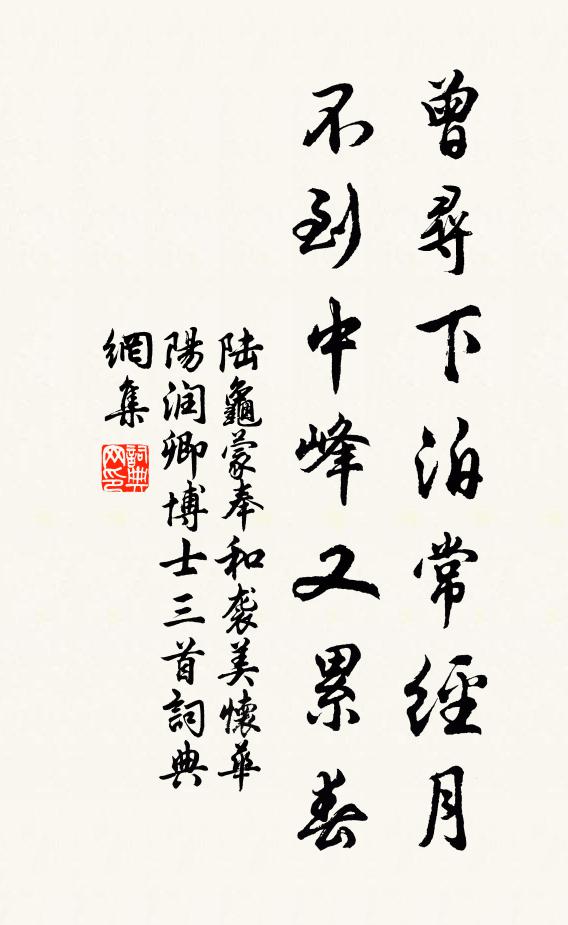 曾尋下泊常經月
不到中峰又累春
陆龜蒙奉和袭美懷華
陽润卿博士三首詞典
網集
詞典
网印